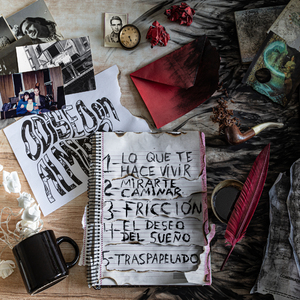 ODISEO en
ALMIBAR
1- LO QUE TE
HACE VIVIR
2- MIRARTE
CAMINAR
3- FRICCIÓN
4- EL DESEO
DEL SUEÑO
5- TRASPAPELADO